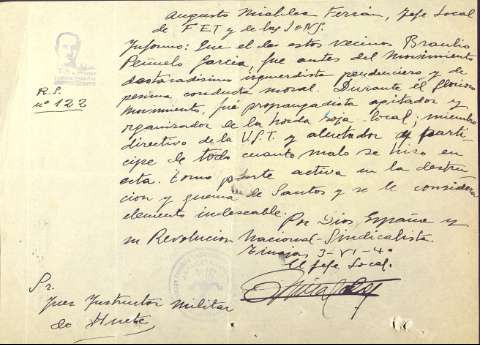 Augusto Mialdea Ferrán, Jefe Local
de F E T y de las J.O.N.S.
Informo: Que el de estos vecinos Braulio
Peñuelo Garcia, fue antes del Movimiento
destacadisimo izquierdista pendenciero y de
pesima conducta moral. Durante el Glorioso
Movimiento, fué propangadista agitador y
organizador de la horda Roja local; miembro
directivo de la U.G.T. y alentador y parti-
cipe de todo cuanto malo se hizo en
esta. Tomo parte activa en la destruc-
cion y quema de Santos y se le considera
elemento indeseable.
Por Dios, España y
su Revolucion Nacional-Sindicalista.
3-VI-40
El Jefe Local.
R.S.
nº 122
Sr.
Juez Instructor Militar
de Huete